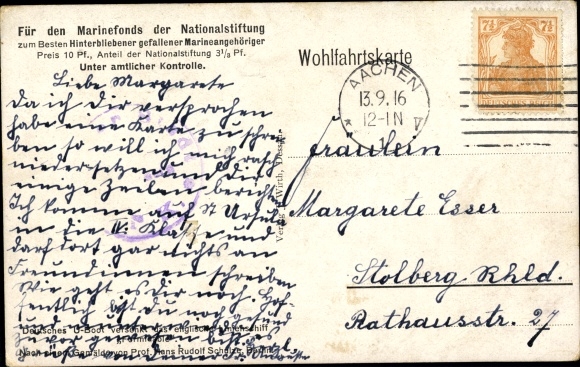 Für den Marinefonds der Nationalstiftung
zum Besten Hinterbliebener gefallener Marineangehöriger
Preis 10 Pf., Anteil der Nationalstiftung 3⅓ Pf.
Unter amtlicher Kontrolle.
Wohlfahrtskarte
7½ 7½
DEUTSCHES REICH
AACHEN
13.9.16
12-1N
Liebe Margarete
da ich Dir versprochen
habe eine Karte zu schrei-
ben so will ich mich rasch
niedersetzen und Dir
einige Zeilen berichten
Ich komme auf St Ursula
in die IV. Klasse und
darf dort gar nichts an
Freundinnen schreiben
Wie geht es dir noch. Hof-
fentlich bist Du noch gesund
zuvor
Fräulein
Margarete Esser
Stolberg Rhld.
Rathausstr. 27
Deutsches U-Boot versenkt das englische Linienschiff
Nach einem Gemälde von Prof. Hans Rudolf Schulze, Berlin